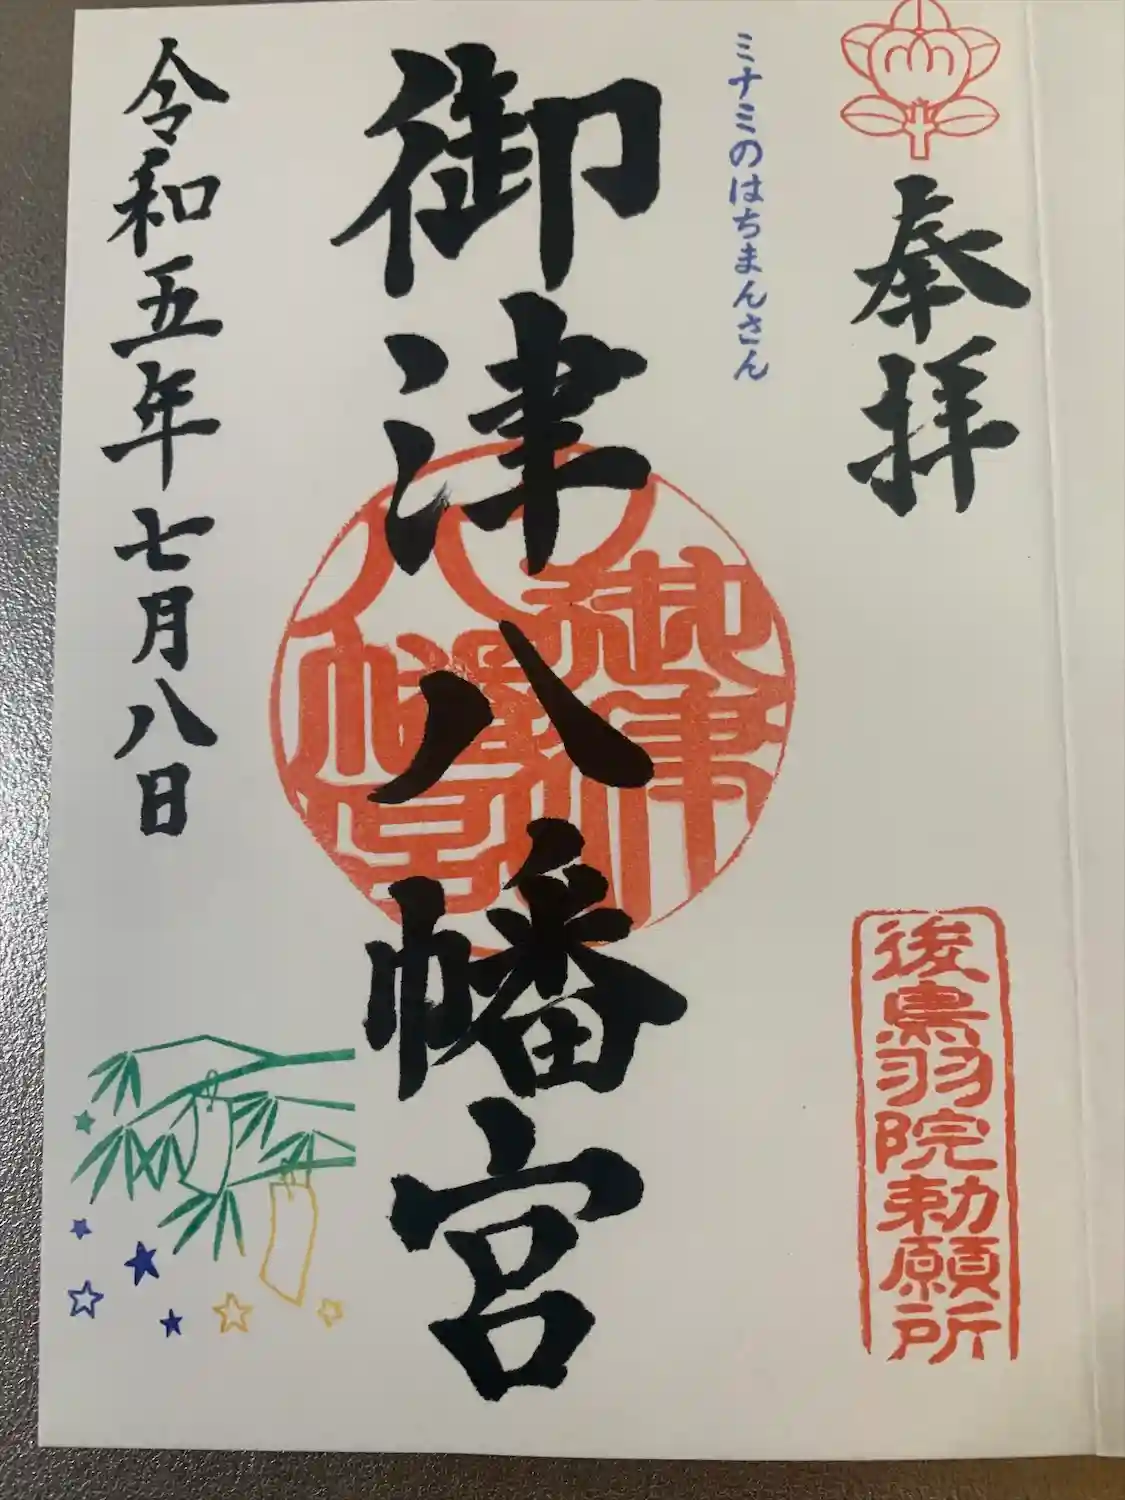 奉拝
後鳥羽院勅願所
ミナミのはちまんさん
御津八幡宮
御津
八幡宮
令和五年七月八日